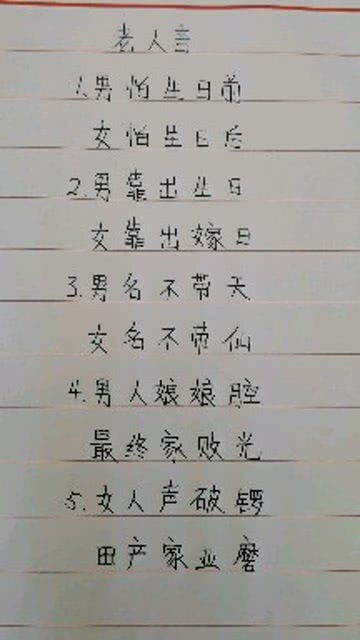 老人言
1.男怕生日前
女怕生日后
2.男靠出生日
女靠出嫁日
3.男名不带天
女名不带仙
4.男人娘娘腔
最终家败光
5.女人声破锣
田产家业磨